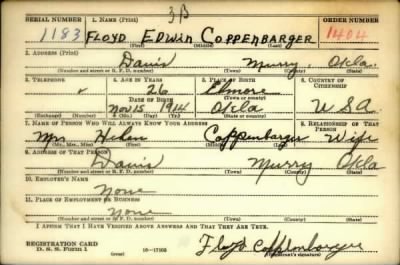 3B
SERIAL NUMBER 1. NAME (Print) ORDER NUMBER
1183 FLOYD EDWIN COPPENBARGER 1404
(First) (Middle) (Last)
2. ADDRESS (Print)
Davis Murry Okla.
(Number and street or R. F. D. number) (Town) (County) (State)
3. TELEPHONE 4. AGE IN YEARS 5. PLACE OF BIRTH 6. COUNTRY OF CITIZENSHIP
26 Elmore
DATE OF BIRTH (Town or county)
Nov 15 1914 Okla U.S.A.
(Exchange) (Number) (Mo.) (Day) (Yr.) (State or country)
7. NAME OF PERSON WHO WILL ALWAYS KNOW YOUR ADDRESS 8. RELATIONSHIP OF THAT PERSON
Mrs. Coppenbarger Wife
(Mr., Mrs., Miss) (First) (Middle) (Last)
9. ADDRESS OF THAT PERSON
Davis Murry Okla
(Number and street or R. F. D. number) (Town) (County) (State)
10. EMPLOYER'S NAME
None
11. PLACE OF EMPLOYMENT OR BUSINESS
None
(Number and street or R. F. D. number) (Town) (County) (State)
I AFFIRM THAT I HAVE VERIFIED ABOVE ANSWERS AND THAT THEY ARE TRUE.
REGISTRATION CARD
D. S. S. Form 1 (over) 16-17105 Floyd Coppenbarger
(Registrant's signature)